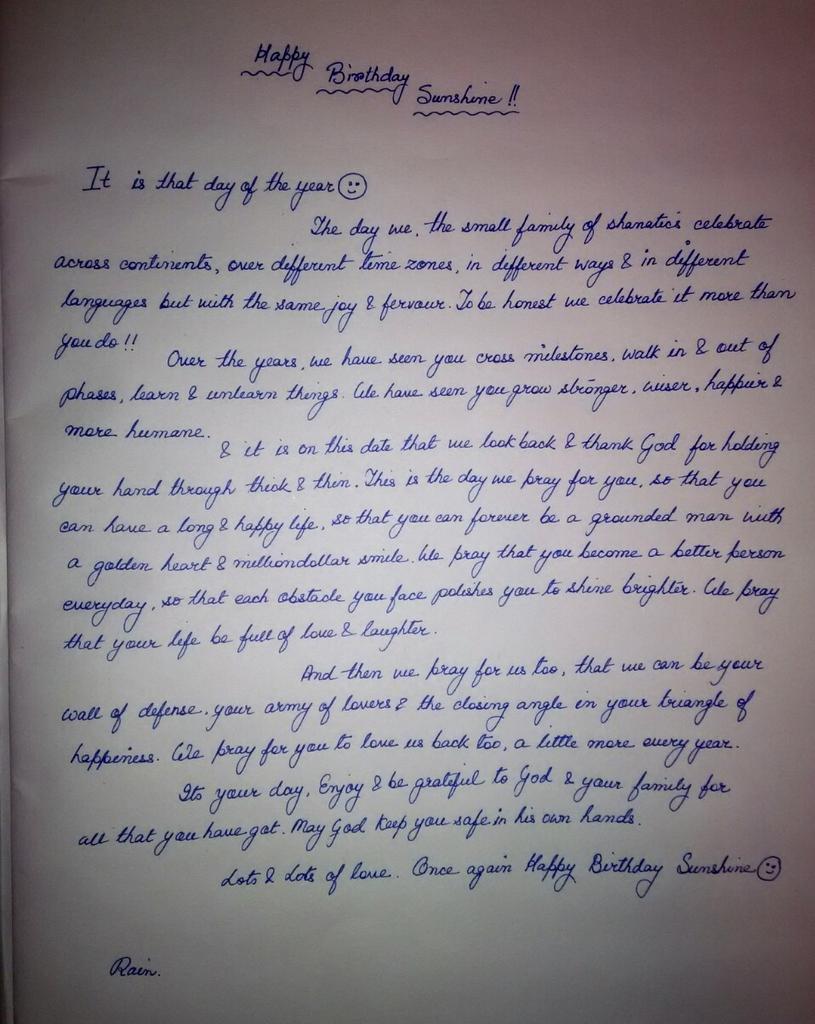 Happy
Birthday
Sunshine !!
It is that day of the year ☺
The day we, the small family of shanatics celebrate
across continents, over different time zones, in different ways & in different
languages but with the same joy & fervour. To be honest we celebrate it more than
you do !!
Over the years, we have seen you cross milestones, walk in & out of
phases, learn & unlearn things. We have seen you grow stronger, wiser, happier &
more humane.
& it is on this date that we look back & thank God for holding
your hand through thick & thin. This is the day we pray for you, so that you
can have a long & happy life, so that you can forever be a grounded man with
a golden heart & milliondollar smile. We pray that you become a better person
everyday, so that each obstacle you face polishes you to shine brighter. We pray
that your life be full of love & laughter.
And then we pray for us too, that we can be your
wall of defense, your army of lovers & the closing angle in your triangle of
happiness. We pray for you to love us back too, a little more every year.
Its your day, Enjoy & be grateful to God & your family for
all that you have got. May God keep you safe in his own hands.
Lots & Lots of love. Once again Happy Birthday Sunshine ☺
Rain.